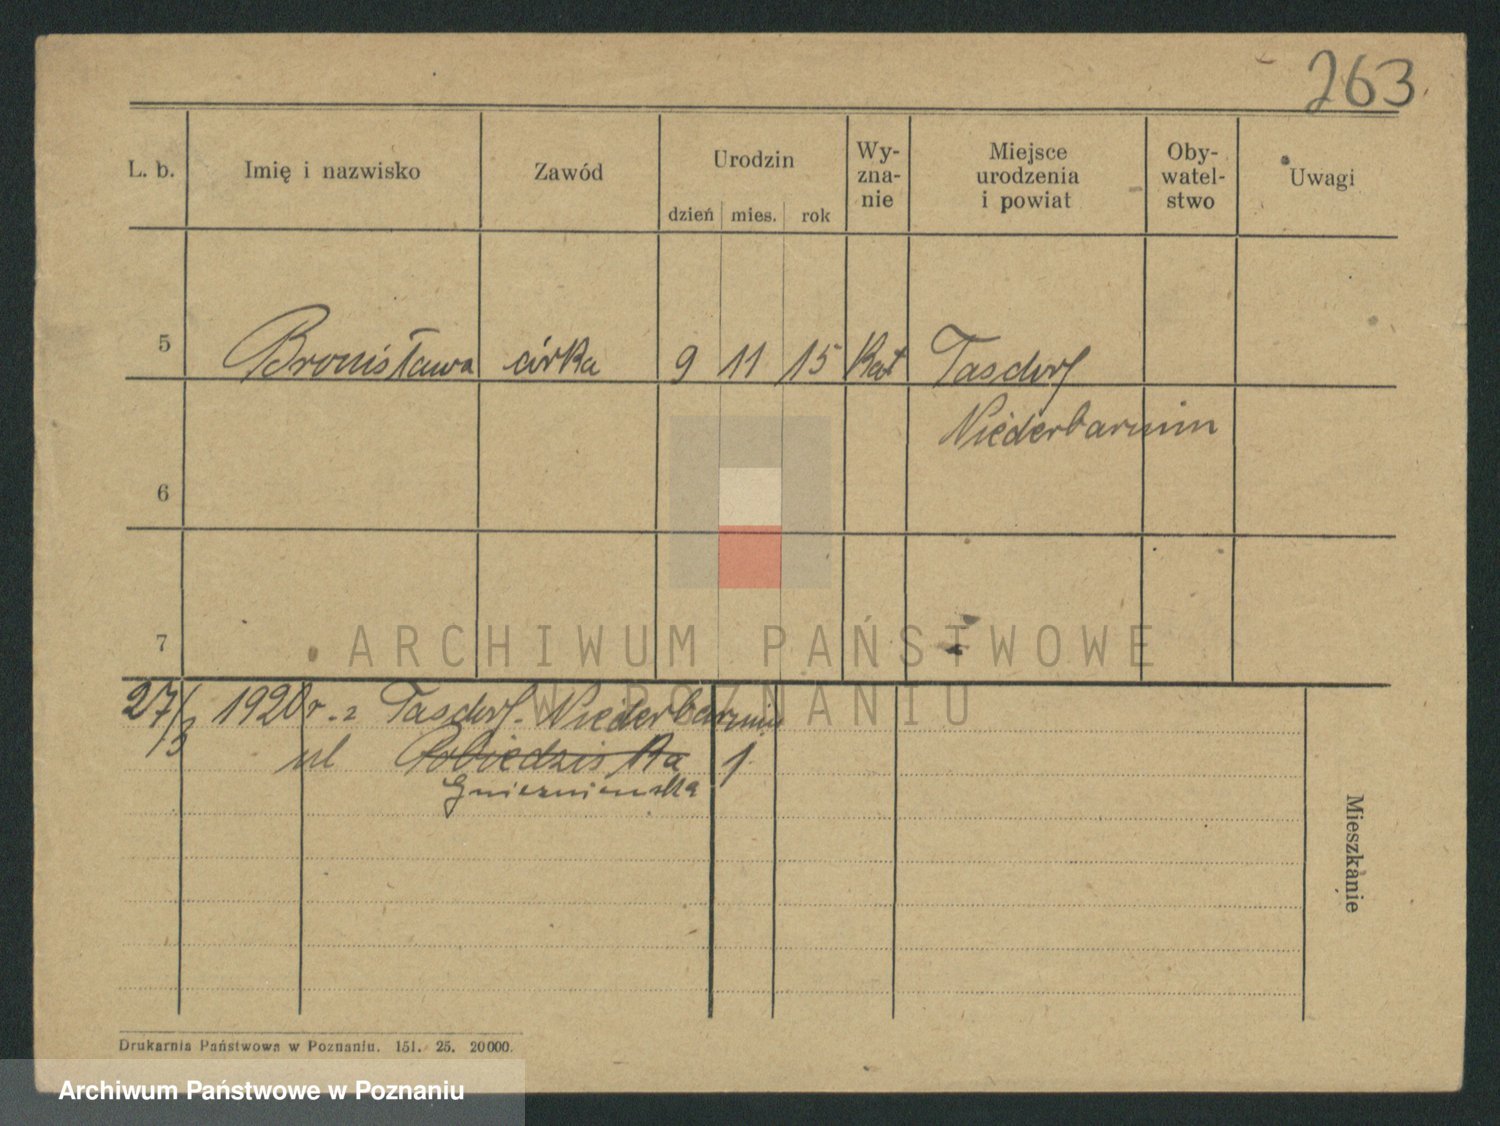 263
L. b. Imię i nazwisko Zawód Urodzin Wy- zna- nie Miejsce urodzenia i powiat Oby- watel- stwo Uwagi
dzień mies. rok
5 Bronisława córka 9 11 15 Kat Tasdorf
Niederbarnim
6
7
ARCHIWUM PAŃSTWOWE
W POZNANIU
27/3 1920 r. z Tasdorf-Niederbarnim
ul Pobiedziska 1
Gnieznienska
Mieszkanie
Drukarnia Państwowa w Poznaniu. 151. 25. 20000.
Archiwum Państwowe w Poznaniu